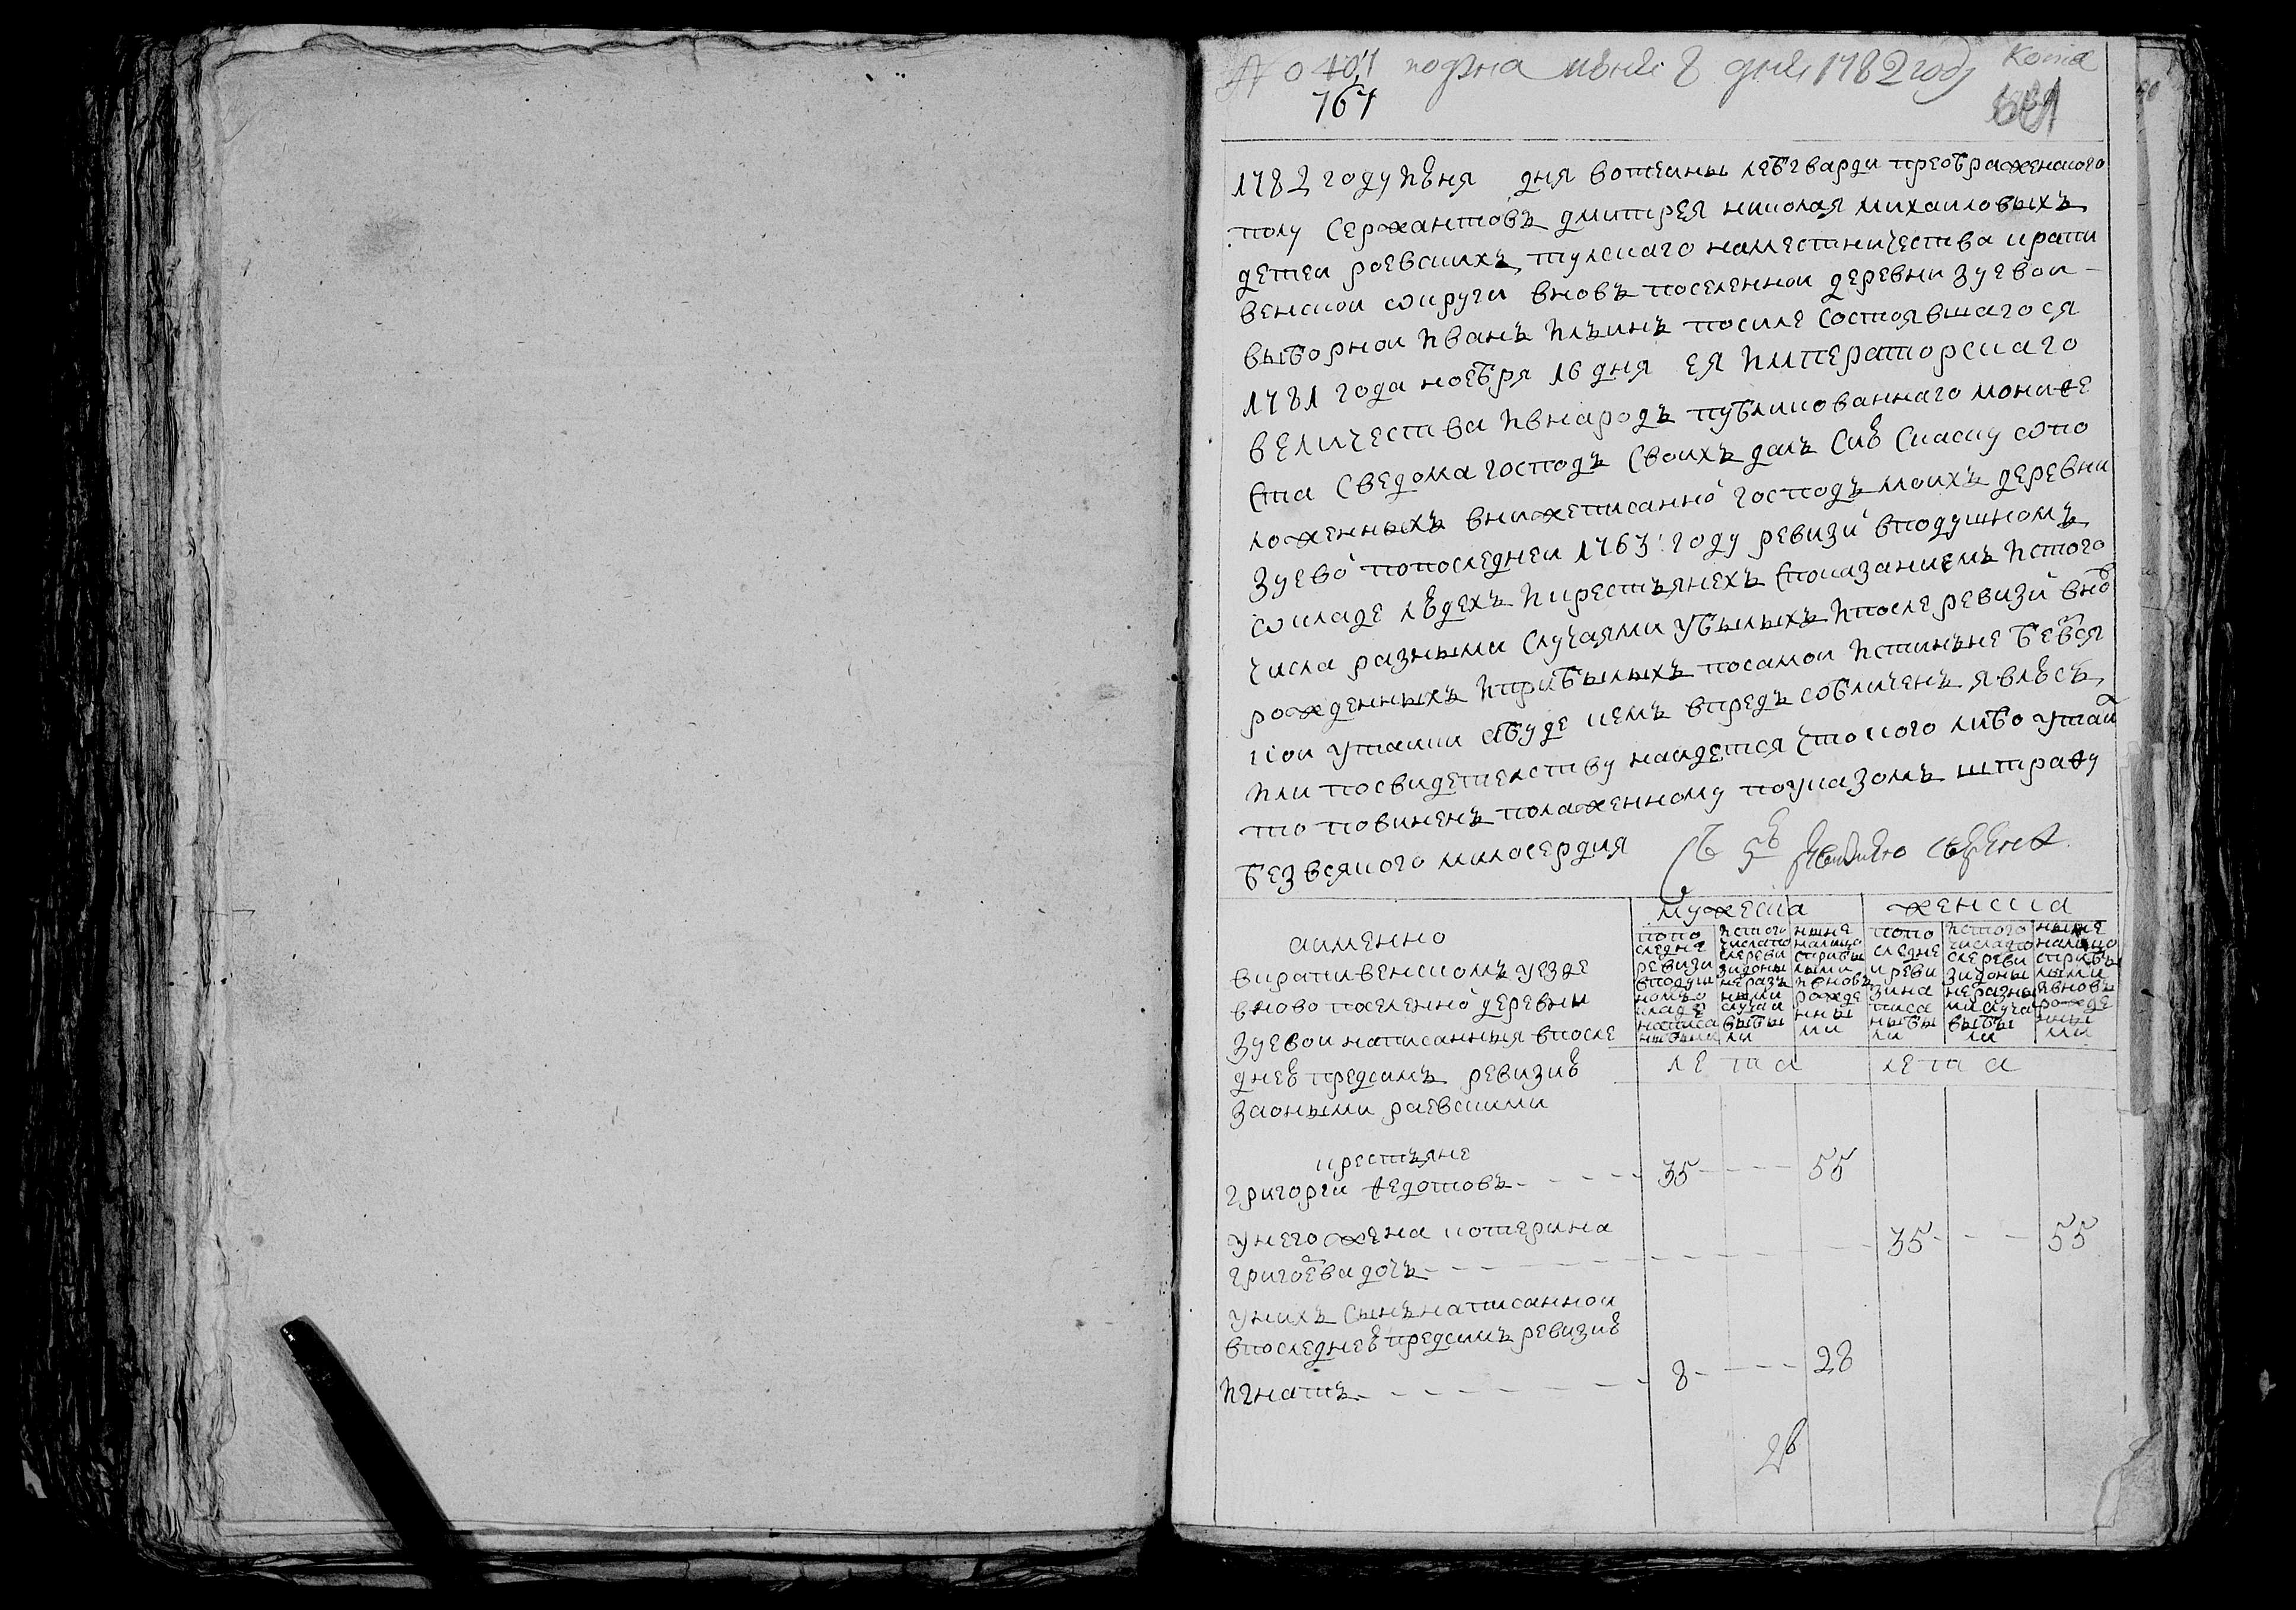 № 407 подана июня 8 дня 1782 году Копia
767
1782 году июня дня вотчины лебгвардии преображенского
полку сержантовъ дмитрея николая михаиловыхъ
детеи раевскихъ тулскаго наместничества крапи
венскои округи вновь поселеннои деревни зуевои
выборнои иванъ ильинъ посиле состоявшагося
1781 года ноебря 16 дня ея императорскаго
величества ивнародъ публикованнаго монифе
ста сведома господъ своихъ далъ сию скаску ополо
женныхъ внижеписанно господъ моихъ деревни
зуево попоследнеи 1763 году ревизи вподушномъ
окладе людехъ икрестьянехъ спаказаниемъ истого
числа разными случаями убылыхъ ипосле ревизи вно
рожденныхъ иприбылыхъ посамои истинъне безвся
кои утаики абуде чемъ впредъ обличенъ явлюсъ
или посвидетелству наидется что кого либо утаи
то повиненъ положенному поуказомъ штрафу
безвсякого милосердия
мужеска женска
аимянно
вкрапивенскомъ уезде
вново поселенно деревни
зуевои написанныя впосле
днею предсимъ ревизию
заоными раевскими
попо следне ревизи вподуш номъ о кладе написа ныбыли
истого числапо слереви зидоны неразъ ными случаи выбы ли
ныне налицо сприбы лыми ивновъ рожде нны ми
попо следне иреви зина писа ныбы ли
истого числапо слереви зидоны неразны мислуча выбы ли
ныне налицо сприбы лыми ивновъ рожде нны ми
лета лета
крестьяне
григореи федотовъ 35 55
унего жена котерина
григоева дочь 35 55
унихъ сынъ написаннои
впоследнею предсимъ ревизию
игнатъ 8 28